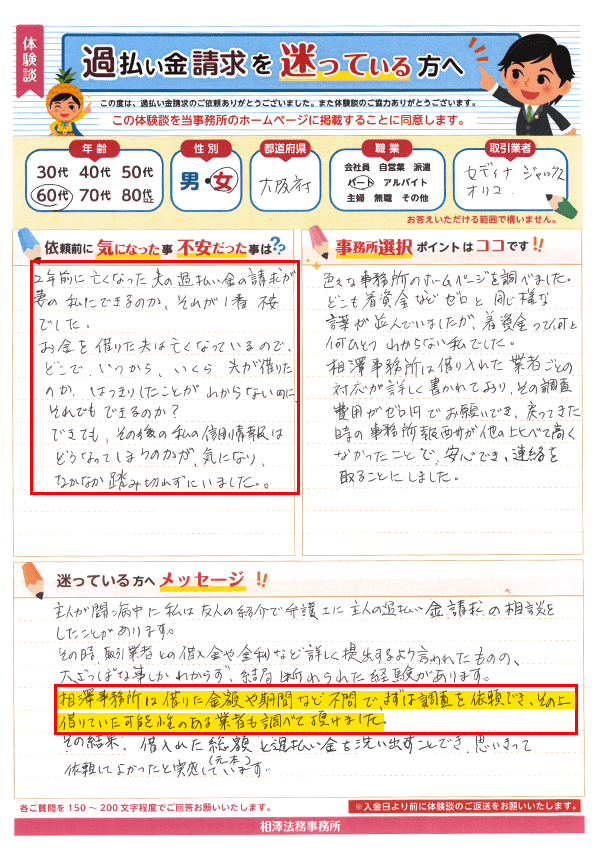 体験談
過払い金請求を迷っている方へ
この度は、過払い金請求のご依頼ありがとうございました。また体験談のご協力ありがとうございます。
この体験談を当事務所のホームページに掲載することに同意します。
年齢
30代 40代 50代
60代 70代 80代以上
性別
男・女
都道府県
大阪府
職業
会社員 自営業 派遣
パート アルバイト
主婦 無職 その他
取引業者
セディナ ジャックス
オリコ
お答えいただける範囲で構いません。
依頼前に気になった事 不安だった事は??
2年前に亡くなった夫の過払い金の請求が
妻の私にできるのか、それが1番不安
でした。
お金を借りた夫は亡くなっているので、
どこで いつから、いくら 夫が借りた
のか、はっきりしたことがわからないのに
それでもできるのか?
できても、その後の私の信用情報は
どうなってしまうのかが、気になり、
なかなか踏み切れずにいました。
事務所選択 ポイントはココです!!
色々な事務所のホームページを調べました。
どこも着資金などゼロと同じ様な
言葉が並んでいましたが、着資金って何と
何ひとつわからない私でした。
相澤事務所は借り入れた業者ごとの
対応が詳しく書かれており、その調査
費用がゼロ円でお願いでき、戻ってきた
時の事務所報酬が他の比べて高く
なかったことで、安心でき、連絡を
取ることにしました。
迷っている方へメッセージ!!
主人が闘病中に私は友人の紹介で弁護士に主人の過払い金請求の相談を
したことがあります。
その時、取引業者との借入金や金利など詳しく提出するよう言われたものの、
大ざっぱな事しかわからず、結局断わられた経験があります。
相澤事務所は借りた金額や期間など不問で、まずは調査を依頼でき、その上
借りていた可能性のある業者も調べて頂けました。
その結果、借入れた総額と過払い金を洗い出すことでき、思いきって
依頼してよかったと実感しています。
(元本)
各ご質問を150～200文字程度でご回答お願いいたします。
※入金日より前に体験談のご返送をお願いいたします。
相澤法務事務所